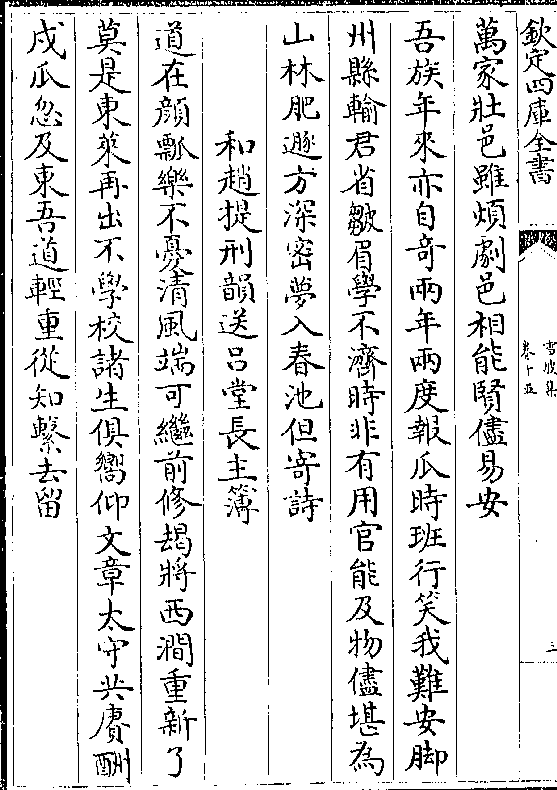 欽定四庫全書
雪坡集
卷十五
三
萬家壯邑雖煩劇邑相能賢儘易安
吾族年來亦自奇兩年兩度報瓜時班行笑我難安脚
州縣輸君省皺眉學不濟時非有用官能及物儘堪為
山林肥遯方深密夢入春池但寄詩
和趙提刑韻送吕堂長主簿
道在顔瓢樂不憂清風端可繼前修朅將西澗重新了
莫是東萊再出不學校諸生俱嚮仰文章太守共賡酬
戍瓜忽及東吾道輕重從知繫去留